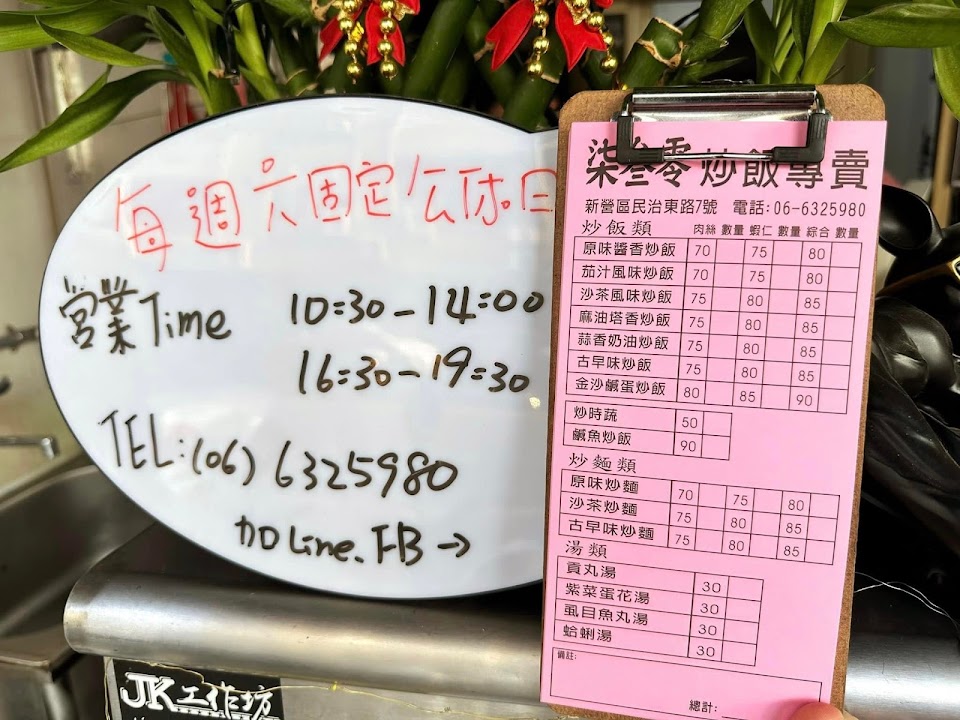 每週六固定公休日
營業Time 10:30-14:00
16:30-19:30
TEL:(06) 6325980
加Line.FB→
JK工作坊
柒叁零炒飯專賣
新營區民治東路7號 電話:06-6325980
炒飯類 肉絲 數量 蝦仁 數量 綜合 數量
原味醬香炒飯 70 75 80
茄汁風味炒飯 70 75 80
沙茶風味炒飯 75 80 85
麻油塔香炒飯 75 80 85
蒜香奶油炒飯 75 80 85
古早味炒飯 75 80 85
金沙鹹蛋炒飯 80 85 90
炒時蔬 50
鹹魚炒飯 90
炒麵類
原味炒麵 70 75 80
沙茶炒麵 75 80 85
古早味炒麵 75 80 85
湯類
貢丸湯 30
紫菜蛋花湯 30
虱目魚丸湯 30
蛤蜊湯 30
備註:
總計: